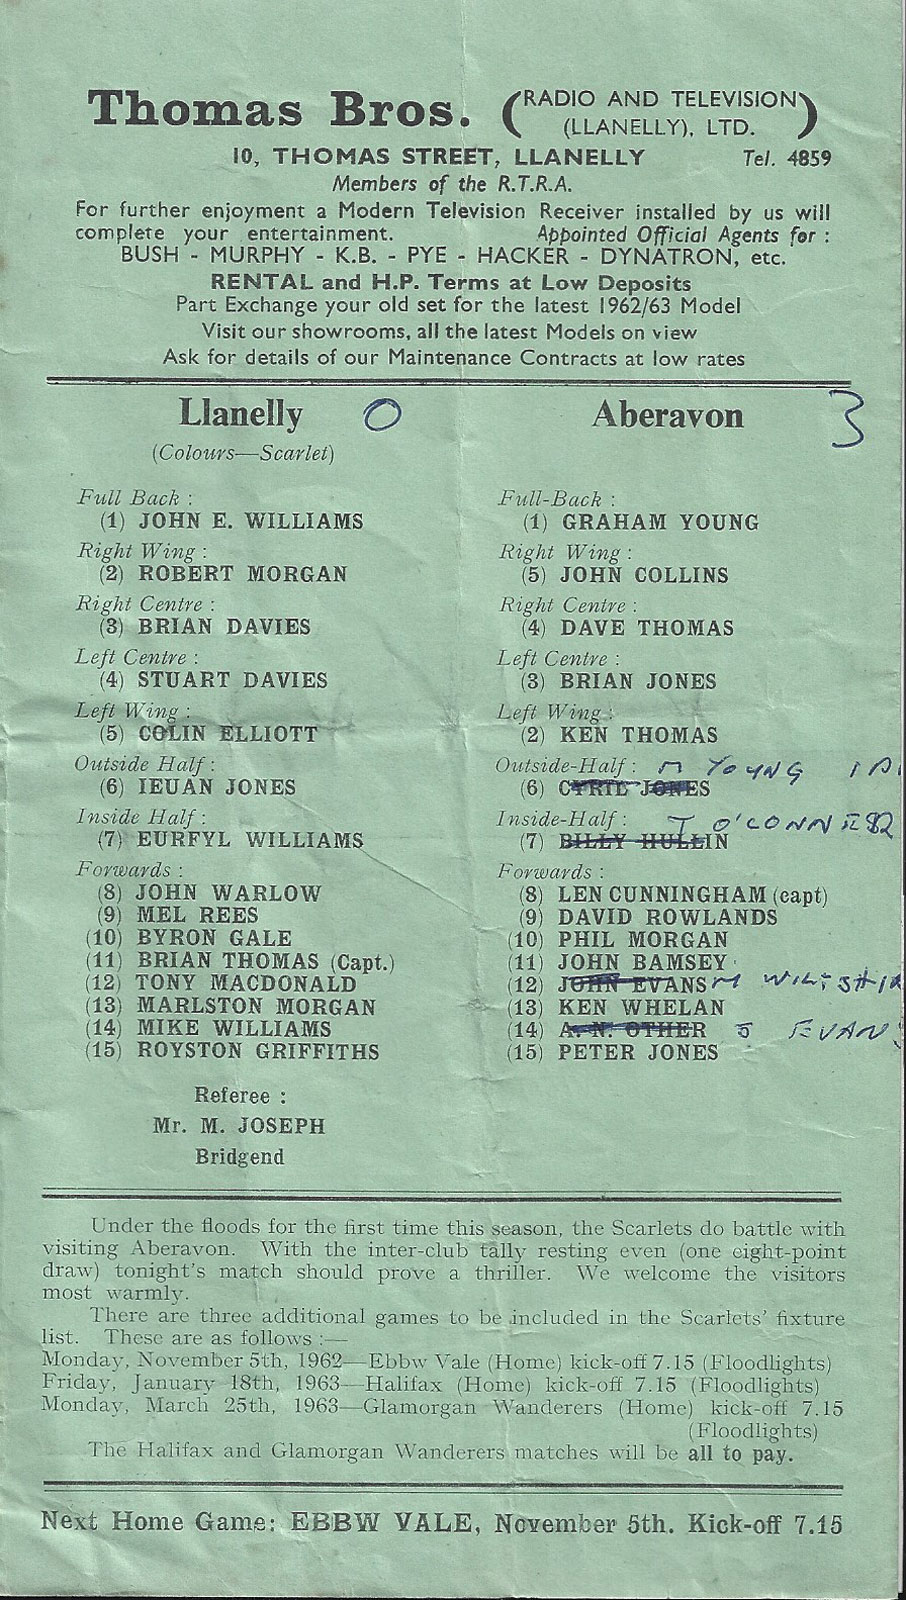 Thomas Bros. (RADIO AND TELEVISION
(LLANELLY), LTD.)
10, THOMAS STREET, LLANELLY Tel. 4859
Members of the R.T.R.A.
For further enjoyment a Modern Television Receiver installed by us will
complete your entertainment. Appointed Official Agents for :
BUSH - MURPHY - K.B. - PYE - HACKER - DYNATRON, etc.
RENTAL and H.P. Terms at Low Deposits
Part Exchange your old set for the latest 1962/63 Model
Visit our showrooms, all the latest Models on view
Ask for details of our Maintenance Contracts at low rates
Llanelly 0
(Colours—Scarlet)
Full Back :
(1) JOHN E. WILLIAMS
Right Wing :
(2) ROBERT MORGAN
Right Centre :
(3) BRIAN DAVIES
Left Centre :
(4) STUART DAVIES
Left Wing :
(5) COLIN ELLIOTT
Outside Half :
(6) IEUAN JONES
Inside Half :
(7) EURFYL WILLIAMS
Forwards :
(8) JOHN WARLOW
(9) MEL REES
(10) BYRON GALE
(11) BRIAN THOMAS (Capt.)
(12) TONY MACDONALD
(13) MARLSTON MORGAN
(14) MIKE WILLIAMS
(15) ROYSTON GRIFFITHS
Referee :
Mr. M. JOSEPH
Bridgend
Aberavon 3
Full-Back :
(1) GRAHAM YOUNG
Right Wing :
(5) JOHN COLLINS
Right Centre :
(4) DAVE THOMAS
Left Centre :
(3) BRIAN JONES
Left Wing :
(2) KEN THOMAS
Outside-Half : M YOUNG
(6) CYRIL JONES
Inside-Half : T
(7) BILLY HULLIN
Forwards :
(8) LEN CUNNINGHAM (capt)
(9) DAVID ROWLANDS
(10) PHIL MORGAN
(11) JOHN BAMSEY
(12) JOHN EVANS M
(13) KEN WHELAN
(14) A. N. OTHER J EVANS
(15) PETER JONES
Under the floods for the first time this season, the Scarlets do battle with
visiting Aberavon. With the inter-club tally resting even (one eight-point
draw) tonight's match should prove a thriller. We welcome the visitors
most warmly.
There are three additional games to be included in the Scarlets' fixture
list. These are as follows :—
Monday, November 5th, 1962—Ebbw Vale (Home) kick-off 7.15 (Floodlights)
Friday, January 18th, 1963—Halifax (Home) kick-off 7.15 (Floodlights)
Monday, March 25th, 1963—Glamorgan Wanderers (Home) kick-off 7.15
(Floodlights)
The Halifax and Glamorgan Wanderers matches will be all to pay.
Next Home Game: EBBW VALE, November 5th. Kick-off 7.15